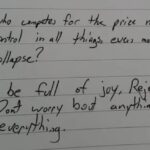 who competes for the price m
control in all things even m
collapse?
be full of joy. Rej
Dont worry bout anythin
everything.